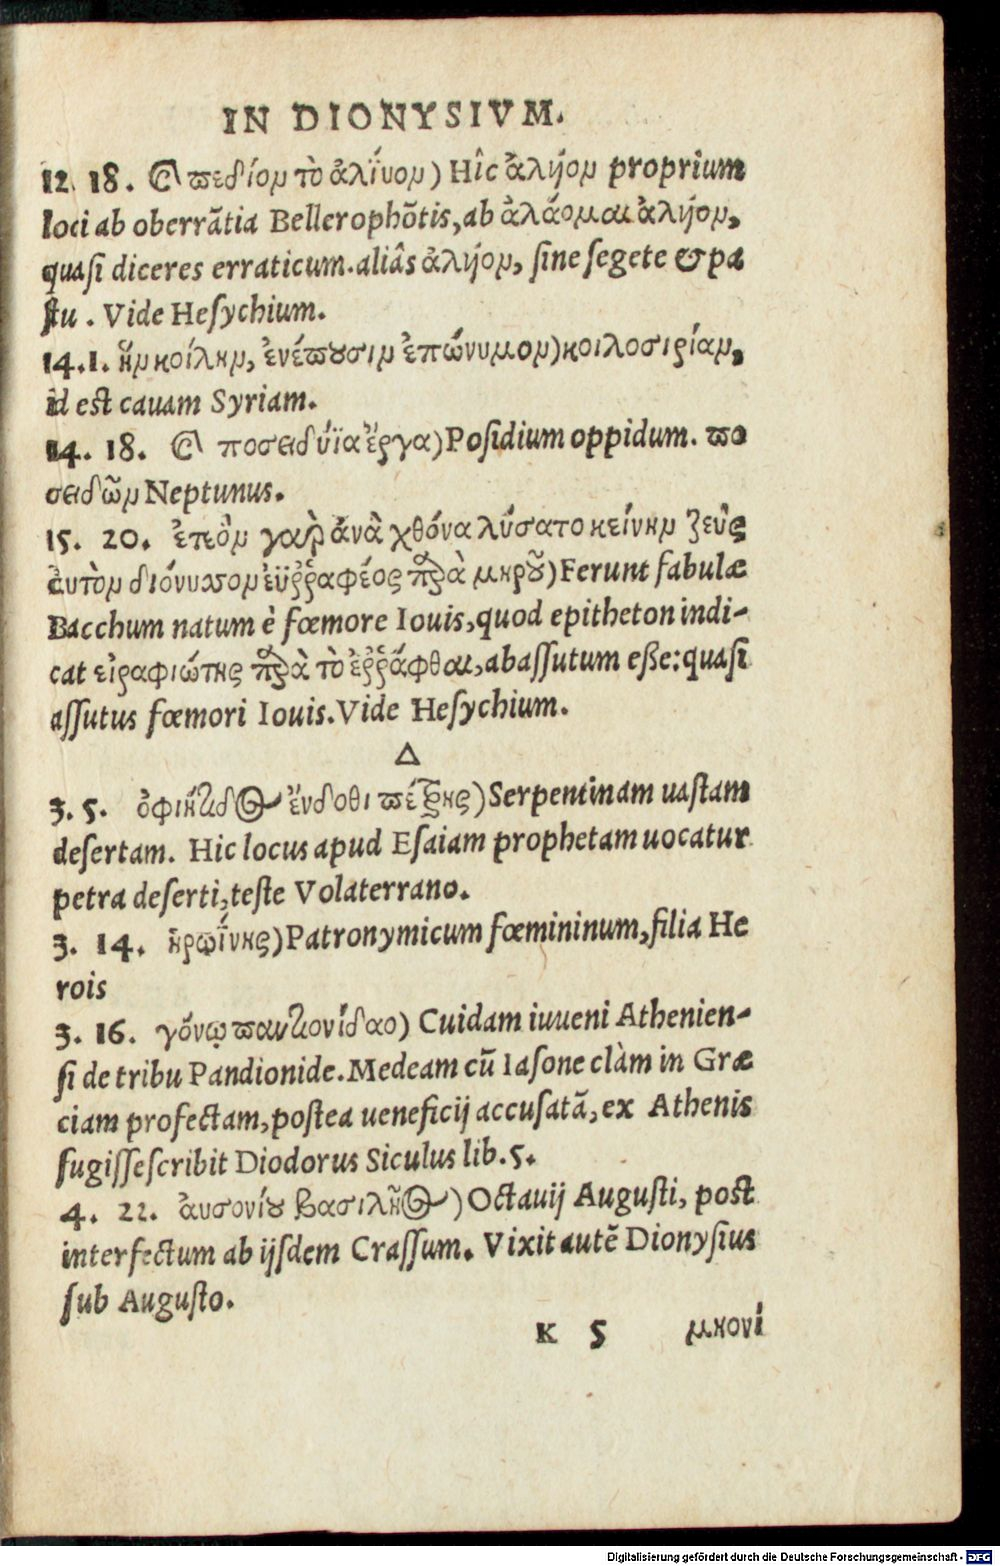 IN DIONYSIVM.
12. 18. πεδίον τὸ ἀλήϊον) Hîc ἀλήϊον proprium
loci ab oberrãtia Bellerophõtis, ab ἀλάομαι ἀλήϊον,
quasi diceres erraticum. aliâs ἀλήϊον, sine segete & pa
stu. Vide Hesychium.
14. 1. ἣν κοίλην, ἐνέπουσιν ἐπώνυμον) κοιλοσιρίαν,
id est cauam Syriam.
14. 18. ποσειδήϊα ἔργα) Posidium oppidum. πο
σειδῶν Neptunus.
15. 20. γαρ ἀνὰ χθόνα λύσατο κείνην Ζεὺς
ἀυτὸν διόνυσον ἐϋῤῥαφέος παρὰ μηροῦ) Ferunt fabulæ
Bacchum natum è fœmore Iouis, quod epitheton indi-
cat εἰραφιώτης παρὰ τὸ ἐῤῥάφθαι, ab assutum esse: quasi
assutus fœmori Iouis. Vide Hesychium.
Δ
3. 5. ὀφιήτιδος ἔνδοθι πέτρης) Serpentinam uastam
desertam. Hic locus apud Esaiam prophetam uocatur
petra deserti, teste Volaterrano.
3. 14. ἡρωΐνης) Patronymicum fœmininum, filia He
rois
3. 16. γόνῳ παντιονίδαο) Cuidam iuueni Athenien-
si de tribu Pandionide. Medeam cũ Iasone clàm in Græ
ciam profectam, postea ueneficij accusatã, ex Athenis
fugisse scribit Diodorus Siculus lib. 5.
4. 22. ἀυσονίου βασιλῆος) Octauij Augusti, post
interfectum ab ijsdem Crassum. Vixit autẽ Dionysius
sub Augusto.
K 5 μηονί
Digitalisierung gefördert durch die Deutsche Forschungsgemeinschaft - DFG